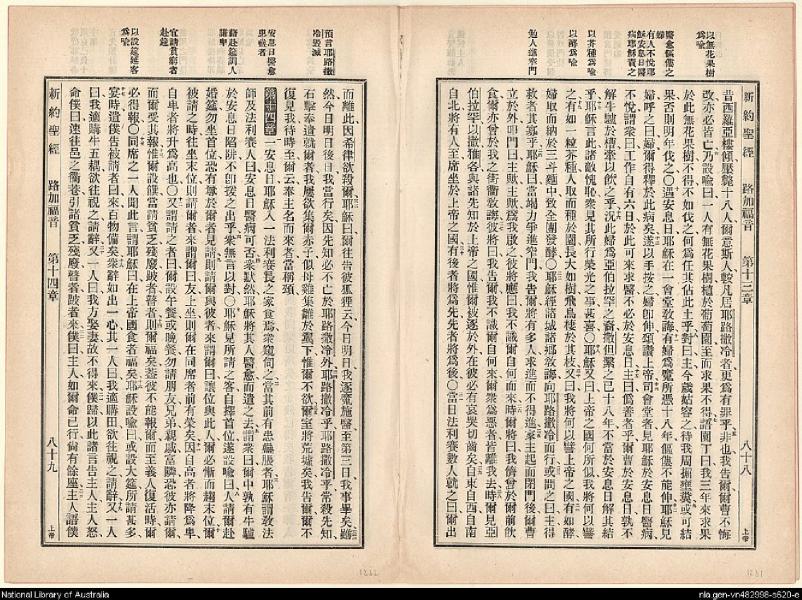 以無花果樹
為喻
醫愈傴僂之
婦
有人不悅耶
穌安息日醫
病耶穌責之
以芥種為喻
以酵為喻
勉人進窄門
新約聖經 路加福音 第十三章 八十八 上帝
昔西羅亞樓傾壓斃十八人爾意斯人較凡居耶路撒冷者更為有罪乎非也我告爾爾曹不悔
改亦必皆亡乃設喻曰一人有無花果樹植於葡萄園至而求果不得謂園丁曰我三年來求果
於此無花果樹不得不如伐之何為任其佔此土乎對曰主今歲姑容之待我周掘壅糞或可結
果否則明年伐之〇遇安息日耶穌在一會堂教誨有婦為鬼所憑十八年傴僂不能伸耶穌見
婦呼之曰婦爾得釋於此病矣遂以手按之婦即伸頌讚上帝司會堂者見耶穌於安息日醫病
不悅謂眾曰工作自有六日於此可來求醫不必於安息日主曰偽善者乎爾曹於安息日孰不
解牛驢於槽牽以飲之乎況此婦為亞伯拉罕之裔撒但繫之已十八年不當於安息日解其結
乎耶穌言此諸敵愧怍眾見其所行榮光之事甚喜〇耶穌又曰上帝之國何所似我將何以譬
之有如一粒芥種人取而種於園長大如樹飛鳥棲於其枝又曰我將何以譬上帝之國有如酵
婦取而納於三斗麵中致全團發酵〇耶穌經諸城諸鄉教誨向耶路撒冷而行或問之曰主得
救者其寡乎耶穌曰當竭力爭進窄門我告爾將有多人求進而不得進家主起而閉門後爾曹
立於外叩門曰主歟主歟為我啟之彼將應曰我不識爾自何而來時爾將曰我儕曾於爾前飲
食爾亦曾於我之街衢教誨彼將曰我告爾我不識爾自何來爾眾為惡者皆離我去時爾見亞
伯拉罕以撒雅各與諸先知於上帝之國惟爾被逐於外在彼必有哀哭切齒矣自東自西自南
自北將有人至席坐於上帝之國有後者將為先先者將為後〇當日法利賽數人就之曰爾出
預言耶路撒
冷毀滅
安息日醫愈
患蠱者
藉赴筵訓人
謙卑
宜請貧窮者
赴筵
以設筵延客
為喻
而離此因希律欲殺爾耶穌曰爾往告彼狐狸云今日明日我逐魔施醫至第三日我事畢矣雖
然今日明日後日我當行矣因先知必不亡於耶路撒冷外耶路撒冷乎耶路撒冷乎常殺先知
石擊奉遣就爾者我屢欲集爾赤子似母雞集雛於翼下惟爾不欲爾室將荒墟矣我告爾爾不
復見我待時至爾云奉主名而來者當稱頌
第十四章 安息日耶穌入一法利賽長之家食焉眾窺伺之當其前有患蠱脹者耶穌謂教法
師及法利賽人曰安息日醫病可否眾默然耶穌將其人醫愈而遣之去謂眾曰爾中孰有牛驢
於安息日陷阱不即援之出乎眾無言以對〇耶穌見所請之客自擇首位遂設喻曰人請爾赴
婚筵勿坐首位恐有尊於爾者見請則請爾與彼者來謂爾曰讓位與此人爾必慚而趨末位爾
被請之時往坐末位則請爾者來謂爾曰友上坐則爾在同席者前有榮矣因自高者將降為卑
自卑者將升為高也〇又謂請之者曰爾設午餐或晚餐勿請朋友兄弟親戚富鄰恐彼亦請爾
而爾受其報惟爾設筵當請貧乏殘廢跛者瞽者則爾福矣蓋彼不能報爾而至義人復活時爾
必得報〇同席之一人聞此言謂耶穌曰在上帝國食者福矣耶穌設喻曰或設大筵所請甚多
宴時遣僕告被請者曰來百物備矣眾辭如出一心其一人曰我適購田欲往視之請辭又一人
曰我適購牛五耦欲往視之請辭又一人曰我方娶妻故不得來僕歸以此諸言告主人主人怒
命僕曰速往邑之衢巷引諸貧乏殘廢瞽者跛者來僕曰主人如爾命已行尚有餘座主人語僕
新約聖經 路加福音 第十四章 八十九 上帝
1232
1231
National Library of Australia
nla.gen-vn482998-s620-e